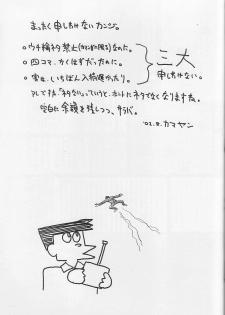 まったく申しわけないカンジ。
○ウチ輪ネタ禁止(カマヤンに限る)なのに。
○四コマ、かくはずだったのに。
○実は、いちばん入稿遅かったり。
三大
申しわけない。
アレですね、「ネタない」っていうと、ホントにネタでなくなりますね。
空白に余韻を残しつつ、サラバ。
'02.8. カマヤン